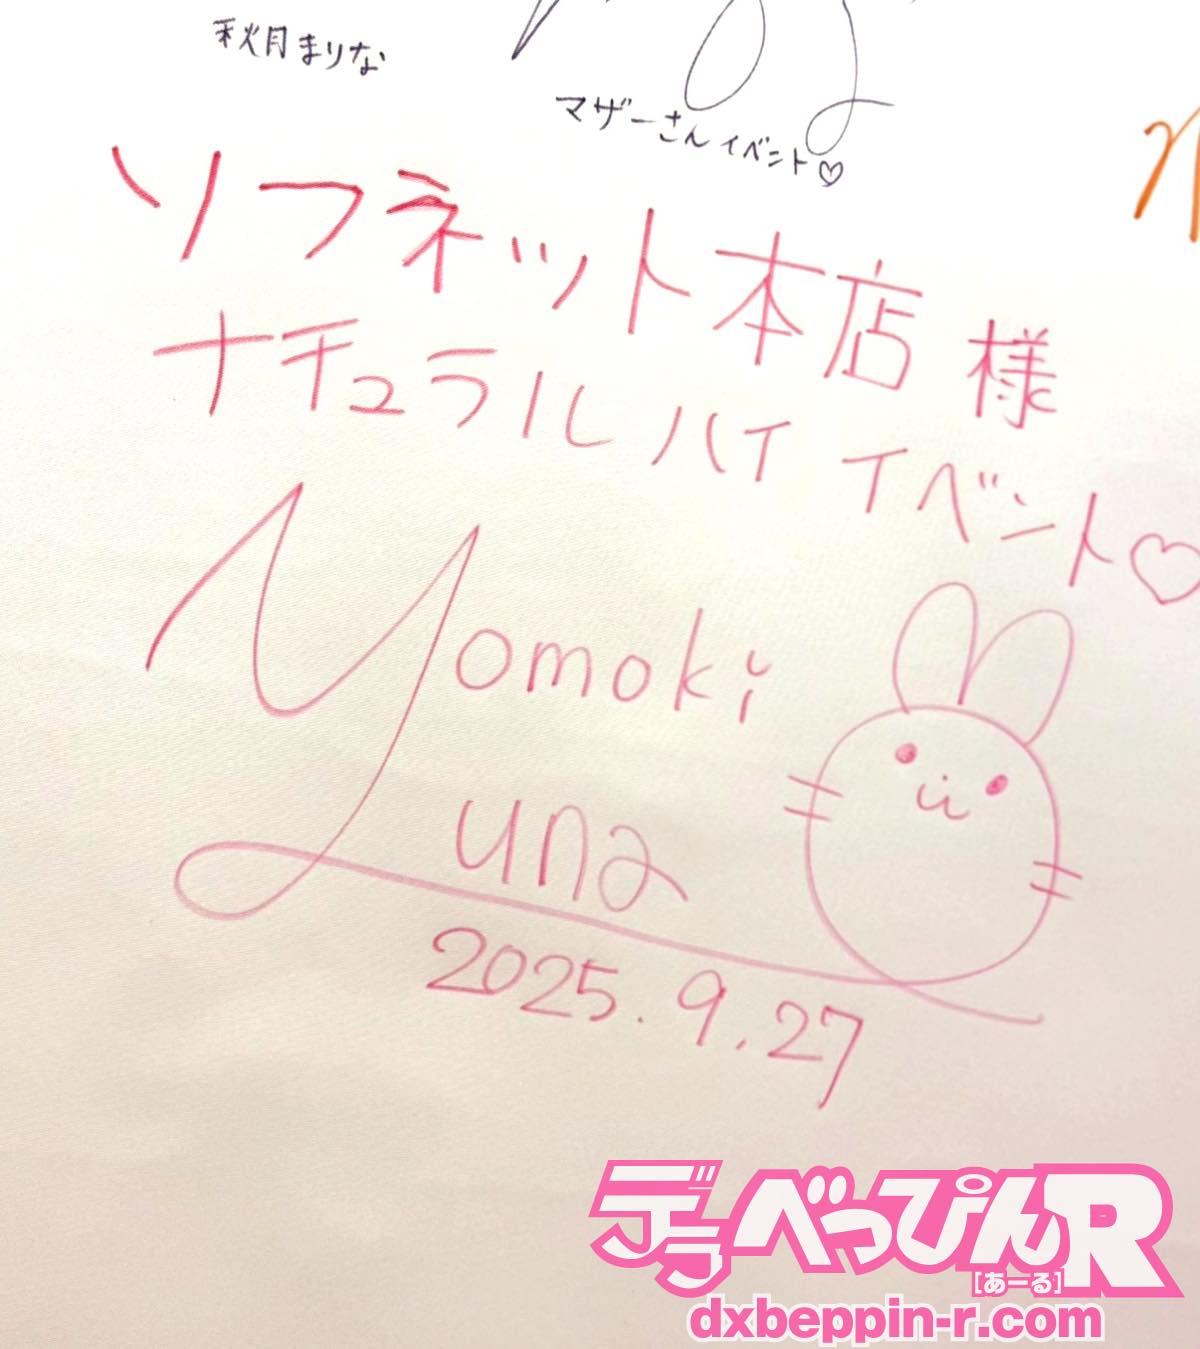 秋月まりな
マザーさんイベント♡
ソフネット本店 様
ナチュラルハイ イベント♡
Yomoki
Luna
2025.9.27
デラべっぴんR
[あーる]
dxbeppin-r.com